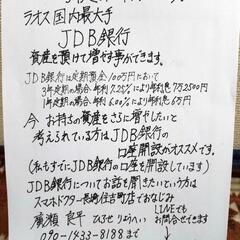 ラオス国内最大手
JDB銀行
資産を預けて増やす事ができます。
JDB銀行は定期預金100万円において
3年定期の場合、年利7.25%により年利息7万2500円
1年定期の場合、年利6.00%により年利息6万円
今お持ちの資産をさらに増やしたいと
考えられている方はJDB銀行の
口座開設がオススメです。
(私もすでにJDB銀行の口座を開設しています)
JDB銀行についてお話を聞きたいという方は
スマホドクター長崎住吉町店でおなじみ
廣瀬良平 ひろせりょうへい
LINEでも
お問合せできます
090-1433-8188まで